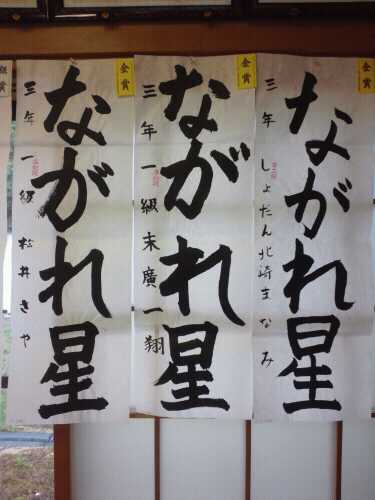 金賞
ながれ星
三年 しょだん 北崎まなみ
金賞
ながれ星
三年 一級 末廣一翔
金賞
ながれ星
三年 一級 松井さや